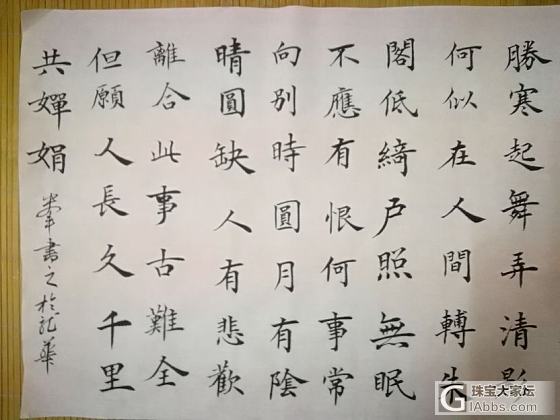 勝寒起舞弄清影
何似在人間轉朱
閣低綺戶照無眠
不應有恨何事常
向別時圓月有陰
晴圓缺人有悲歡
離合此事古難全
但願人長久千里
共嬋娟
書之於龍華
珠宝大家坛
GIAbbs.com